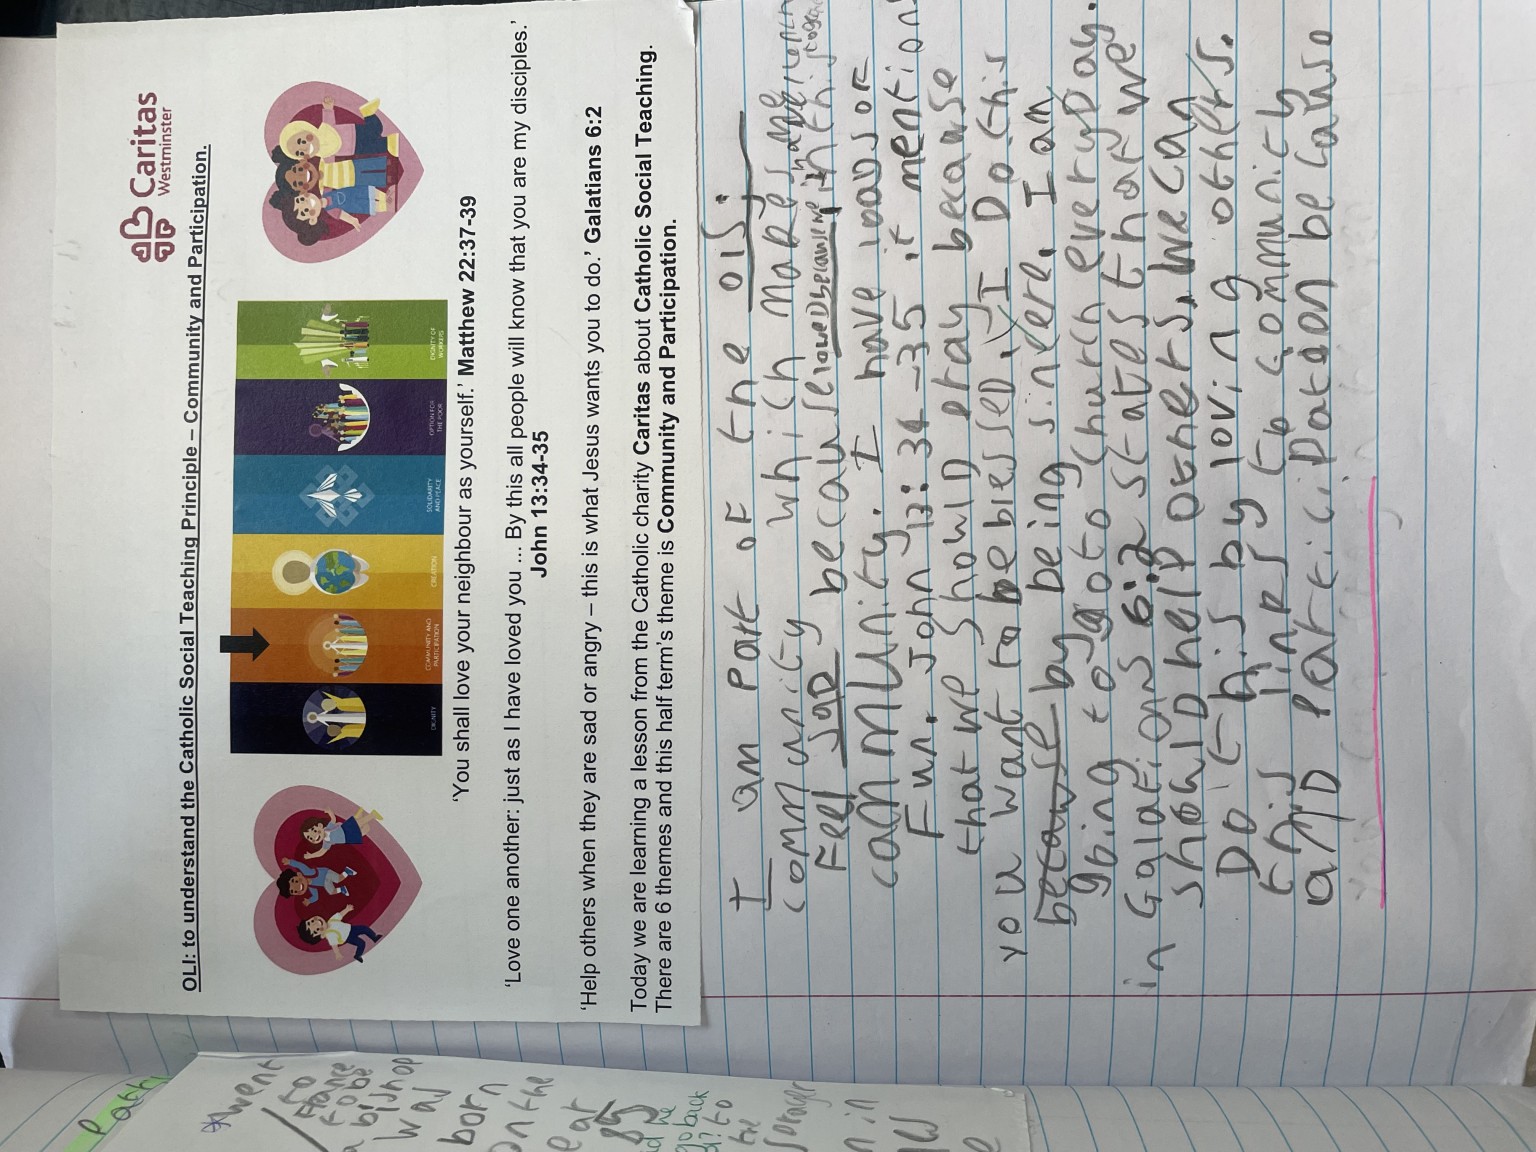 Caritas
Westminster
OLI: to understand the Catholic Social Teaching Principle – Community and Participation.
DIGNITY
COMMUNITY AND
PARTICIPATION
CREATION
SOLIDARITY
AND PEACE
OPTION FOR
THE POOR
DIGNITY OF
WORKERS
‘You shall love your neighbour as yourself.’ Matthew 22:37-39
‘Love one another: just as I have loved you ... By this all people will know that you are my disciples.’
John 13:34-35
‘Help others when they are sad or angry – this is what Jesus wants you to do.’ Galatians 6:2
Today we are learning a lesson from the Catholic charity Caritas about Catholic Social Teaching.
There are 6 themes and this half term’s theme is Community and Participation.
I am Part of the OLS:
community which makes me
Feel sad because loved because in this
community. I have loads of
Fun. John 13:34-35 it mentions
that we should pray because
you want to be blessed. I Do this
because by being sincere. I am
going to go to church everyday.
in Galations 6:2 states that we
should help others. We can
Do this by loving others.
this links to community
and Particiipation because
Path
went
to
France
to be
a bishop
was
born
on the
go back